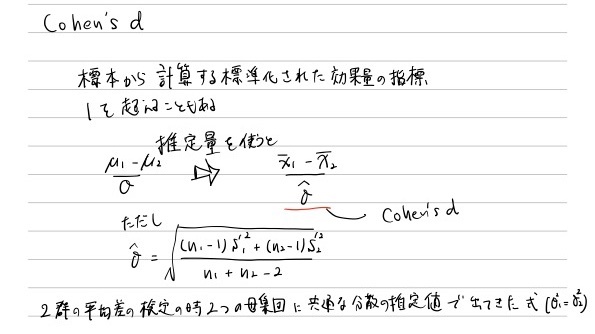 Cohen's d
標本から計算する標準化された効果量の指標
1を超えることもある
推定量を使うと
(μ₁ - μ₂)/σ ⇒ (x̄₁ - x̄₂)/σ̂
Cohen's d
ただし
σ̂ = √(((n₁-1)s'₁² + (n₂-1)s'₂²)/(n₁ + n₂ - 2))
2群の平均差の検定の時2つの母集団に共通な分散の推定値で出てきた式 (σ₁² = σ₂²)